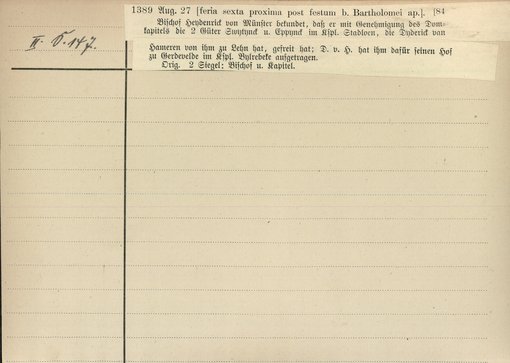 1389 Aug. 27 [feria sexta proxima post festum b. Bartholomei ap.]. [84
Bischof Heydenrick von Münster bekundet, daß er mit Genehmigung des Dom-
kapitels die 2 Güter Swytynck u. Eppynck im Kspl. Stadloen, die Dyderick van
II. S. 147.
Hameren von ihm zu Lehn hat, gefreit hat; D. v. H. hat ihm dafür seinen Hof
zu Gerdevelde im Kspl. Bylrebeke aufgetragen.
Orig. 2 Siegel: Bischof u. Kapitel.